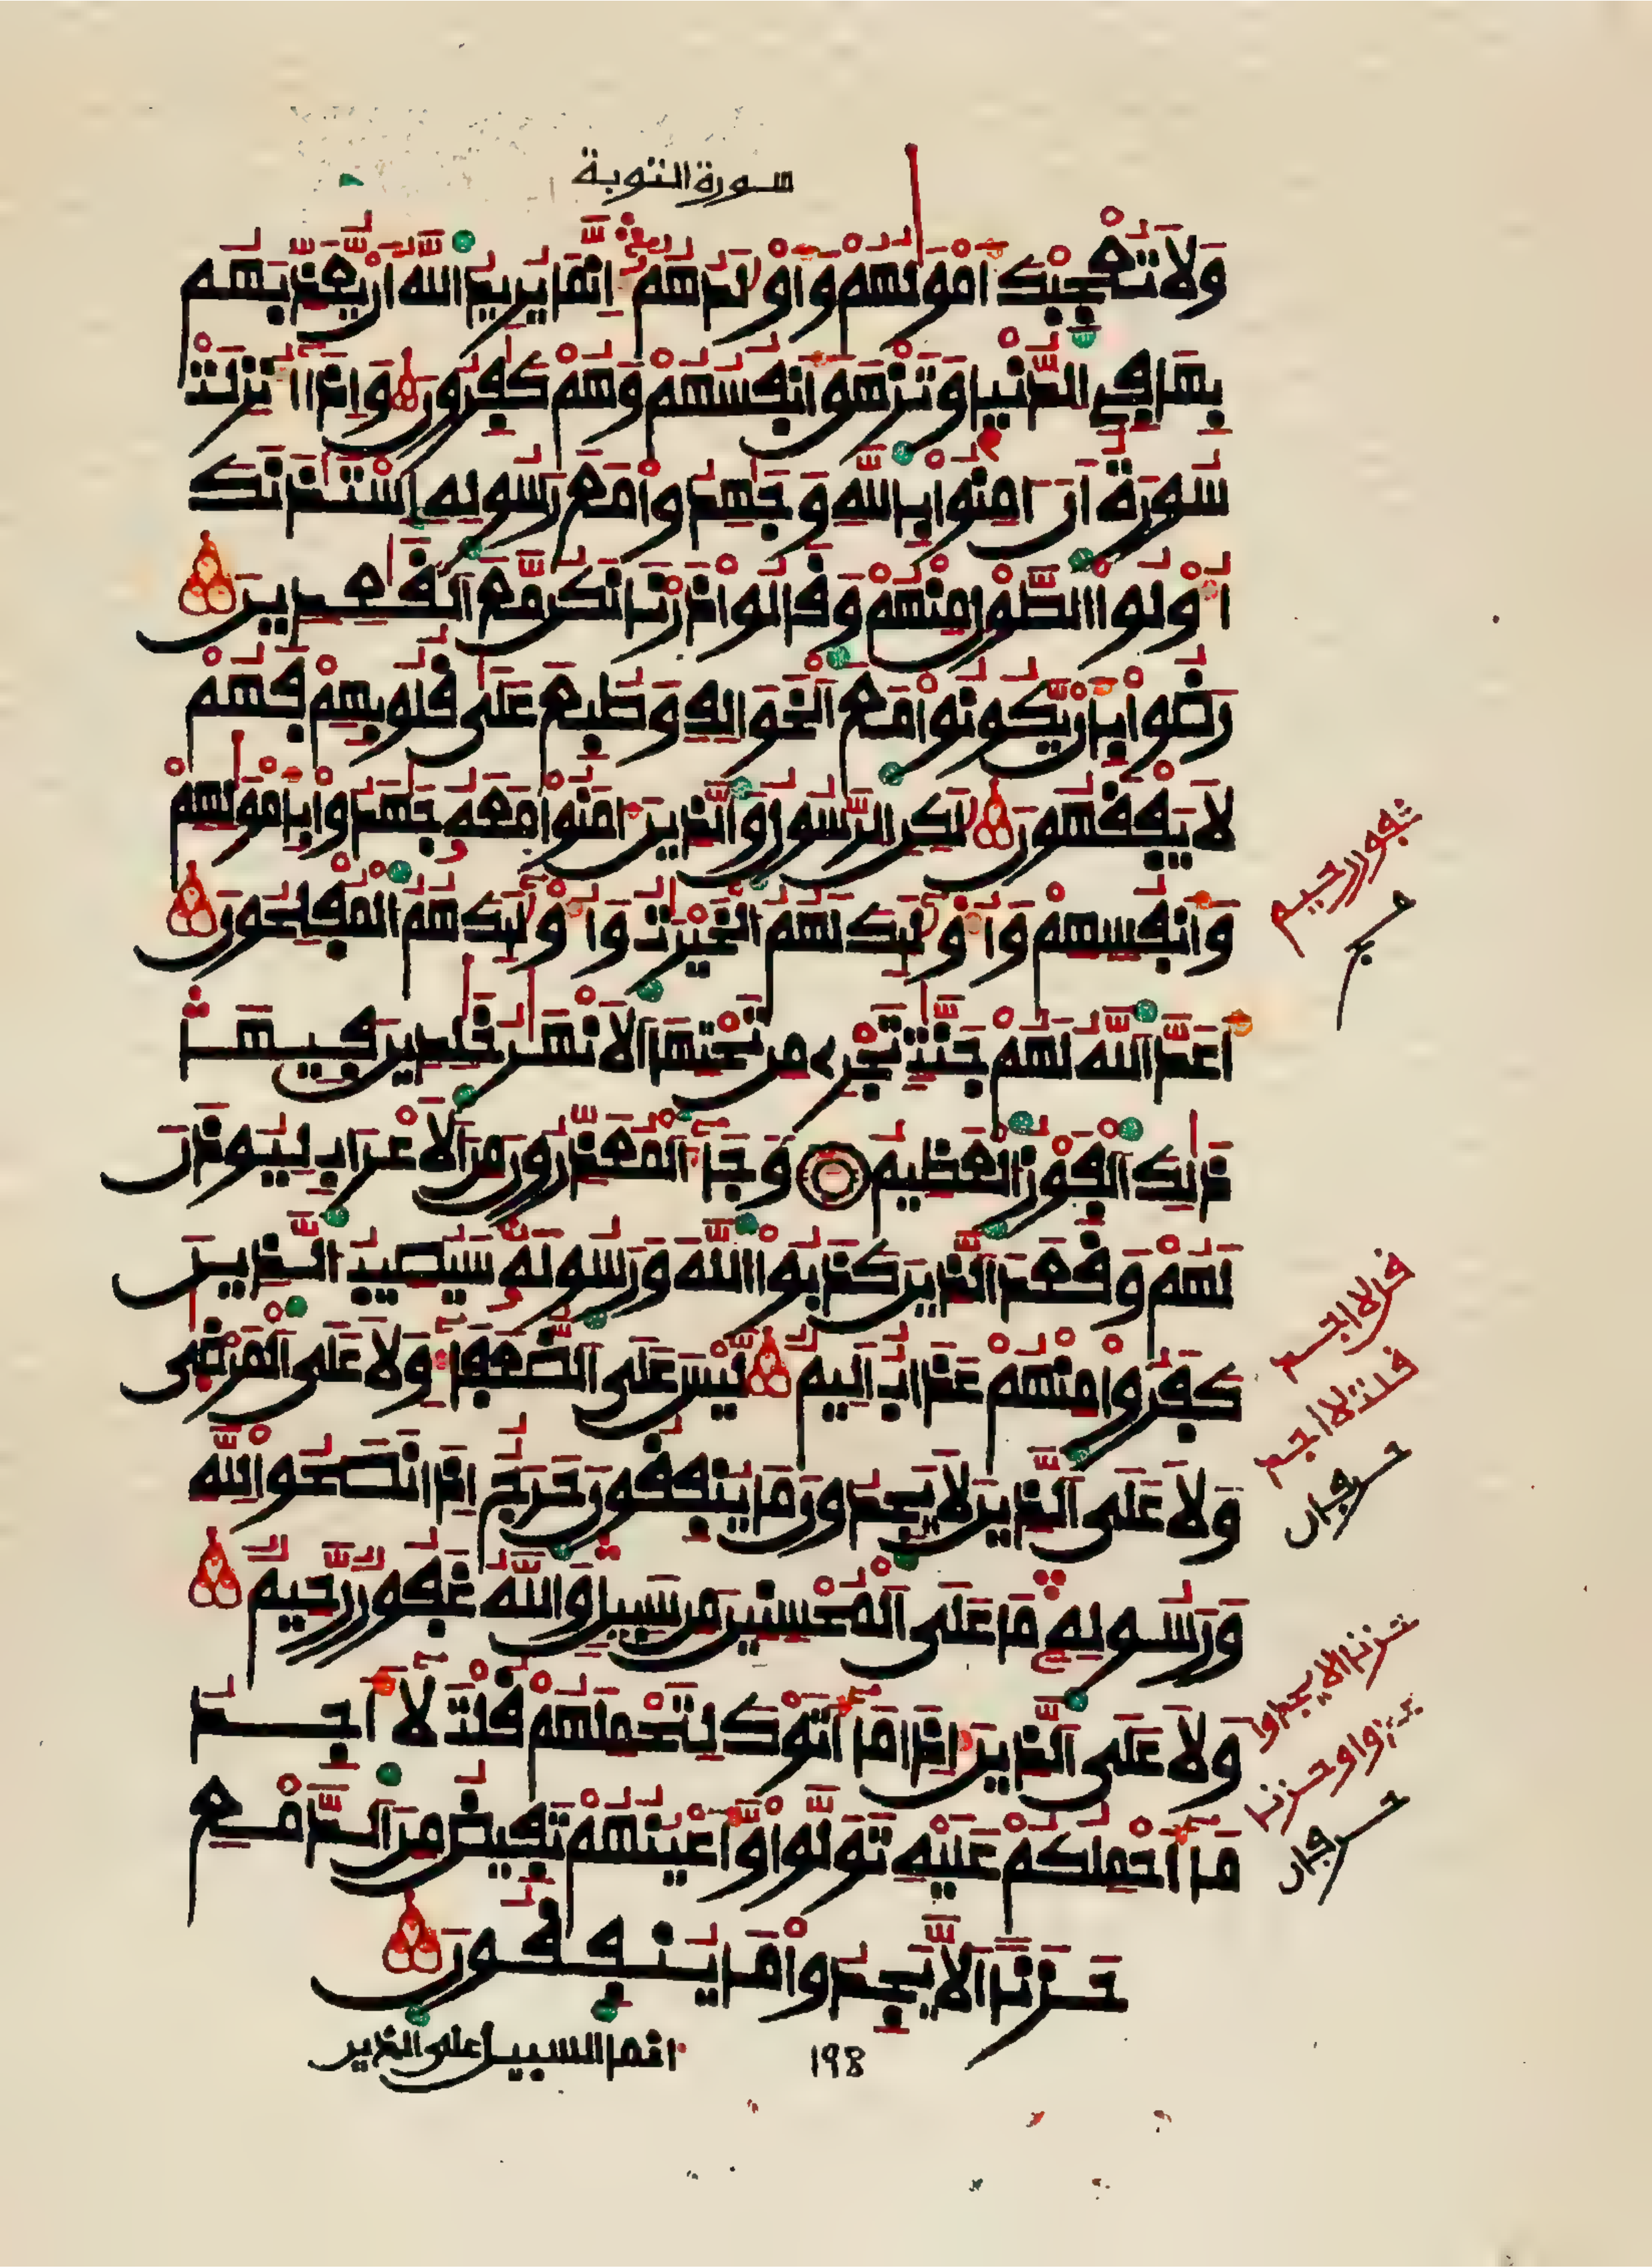 سورة التوبة
وَلَا تُعْجِبْكَ أَمْوَٰلُهُمْ وَأَوْلَٰدُهُمْ إِنَّمَا يُرِيدُ اللَّهُ أَنْ يُعَذِّبَهُم
بِهَا فِي الدُّنْيَا وَتَزْهَقَ أَنْفُسُهُمْ وَهُمْ كَٰفِرُونَ وَإِذَا أُنْزِلَتْ
سُورَةٌ أَنْ ءَامِنُوا بِاللَّهِ وَجَٰهِدُوا مَعَ رَسُولِهِ اسْتَـْٔذَنَكَ
أُوْلُوا الطَّوْلِ مِنْهُمْ وَقَالُوا ذَرْنَا نَكُنْ مَعَ الْقَٰعِدِينَ
رَضُوا بِأَنْ يَكُونُوا مَعَ الْخَوَالِفِ وَطُبِعَ عَلَىٰ قُلُوبِهِمْ فَهُمْ
لَا يَفْقَهُونَ لَٰكِنِ الرَّسُولُ وَالَّذِينَ ءَامَنُوا مَعَهُ جَٰهَدُوا بِأَمْوَٰلِهِمْ
وَأَنْفُسِهِمْ وَأُوْلَٰٓئِكَ لَهُمُ الْخَيْرَٰتُ وَأُوْلَٰٓئِكَ هُمُ الْمُفْلِحُونَ
أَعَدَّ اللَّهُ لَهُمْ جَنَّٰتٍ تَجْرِي مِنْ تَحْتِهَا الْأَنْهَٰرُ خَٰلِدِينَ فِيهَا
ذَٰلِكَ الْفَوْزُ الْعَظِيمُ وَجَآءَ الْمُعَذِّرُونَ مِنَ الْأَعْرَابِ لِيُوذَنَ
لَهُمْ وَقَعَدَ الَّذِينَ كَذَبُوا اللَّهَ وَرَسُولَهُ سَيُصِيبُ الَّذِينَ
كَفَرُوا مِنْهُمْ عَذَابٌ أَلِيمٌ لَيْسَ عَلَى الضُّعَفَآءِ وَلَا عَلَى الْمَرْضَىٰ
وَلَا عَلَى الَّذِينَ لَا يَجِدُونَ مَا يُنْفِقُونَ حَرَجٌ إِذَا نَصَحُوا لِلَّهِ
وَرَسُولِهِ مَا عَلَى الْمُحْسِنِينَ مِنْ سَبِيلٍ وَاللَّهُ غَفُورٌ رَحِيمٌ
وَلَا عَلَى الَّذِينَ إِذَا مَآ أَتَوْكَ لِتَحْمِلَهُمْ قُلْتَ لَآ أَجِدُ
مَآ أَحْمِلُكُمْ عَلَيْهِ تَوَلَّوْا وَّأَعْيُنُهُمْ تَفِيضُ مِنَ الدَّمْعِ
حَزَنًا أَلَّا يَجِدُوا مَا يُنْفِقُونَ
198
انما السبيل على الذين